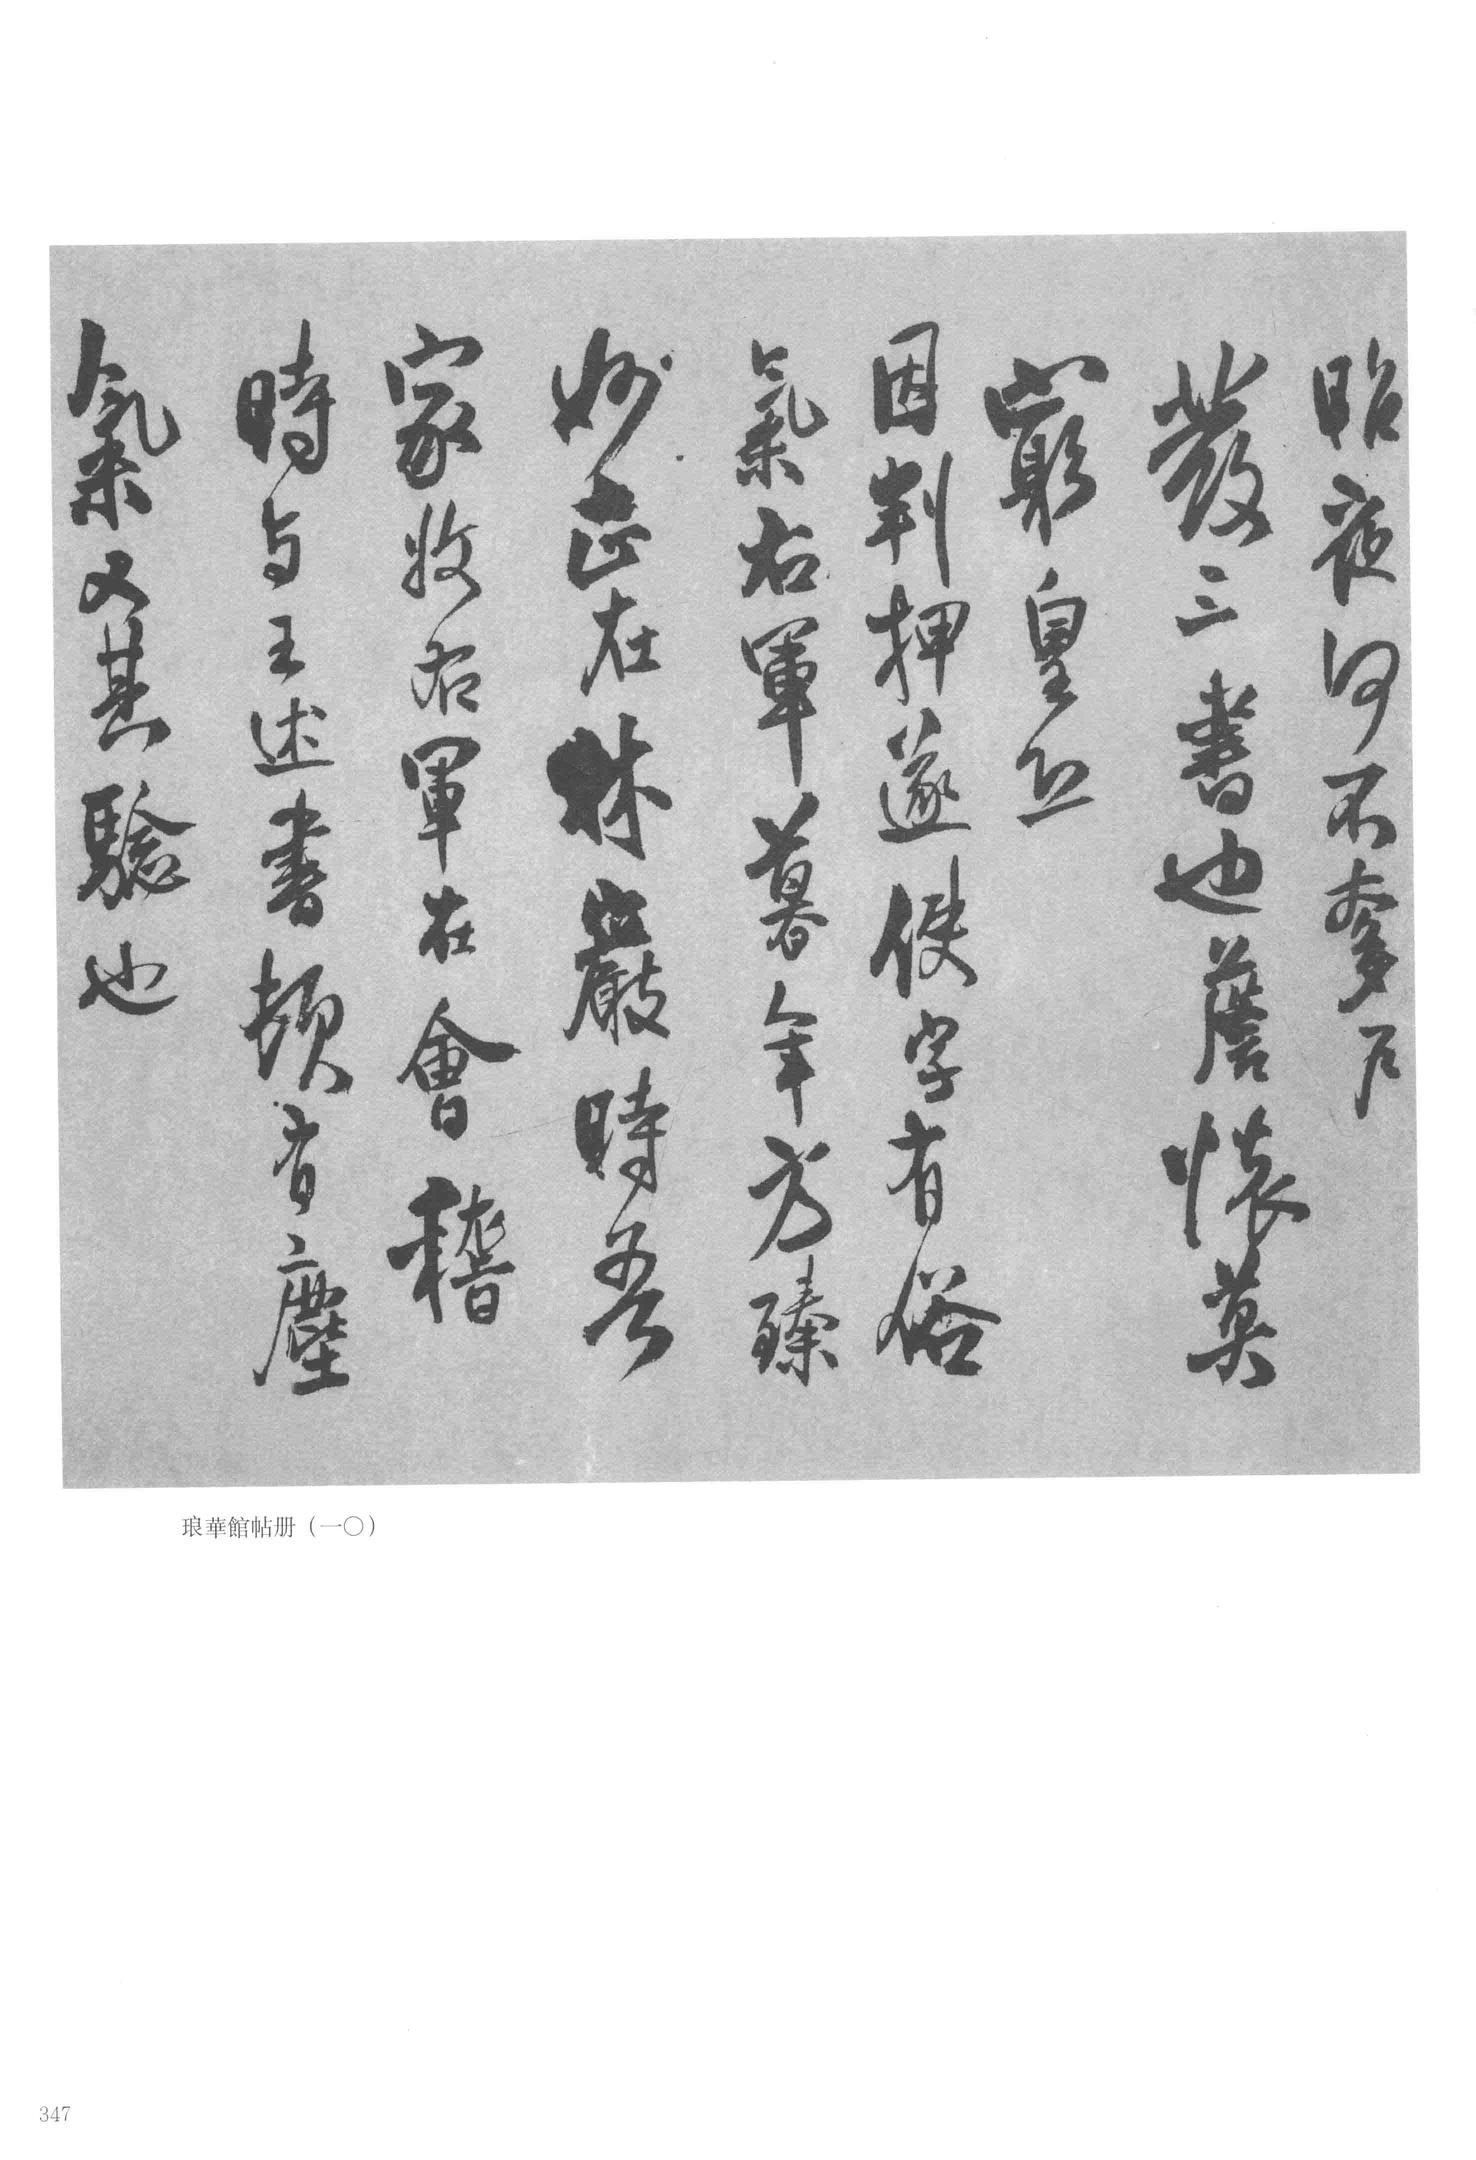 眙夜何不奪尸
發三書也薝懷莫
窮皇恐
因判押遂使字有俗
氣右軍暮年方臻
妙正在林巖時吾
家收右軍在會稽
時与王述書頓有塵
氣又其驗也
琅華館帖册（一〇）
347